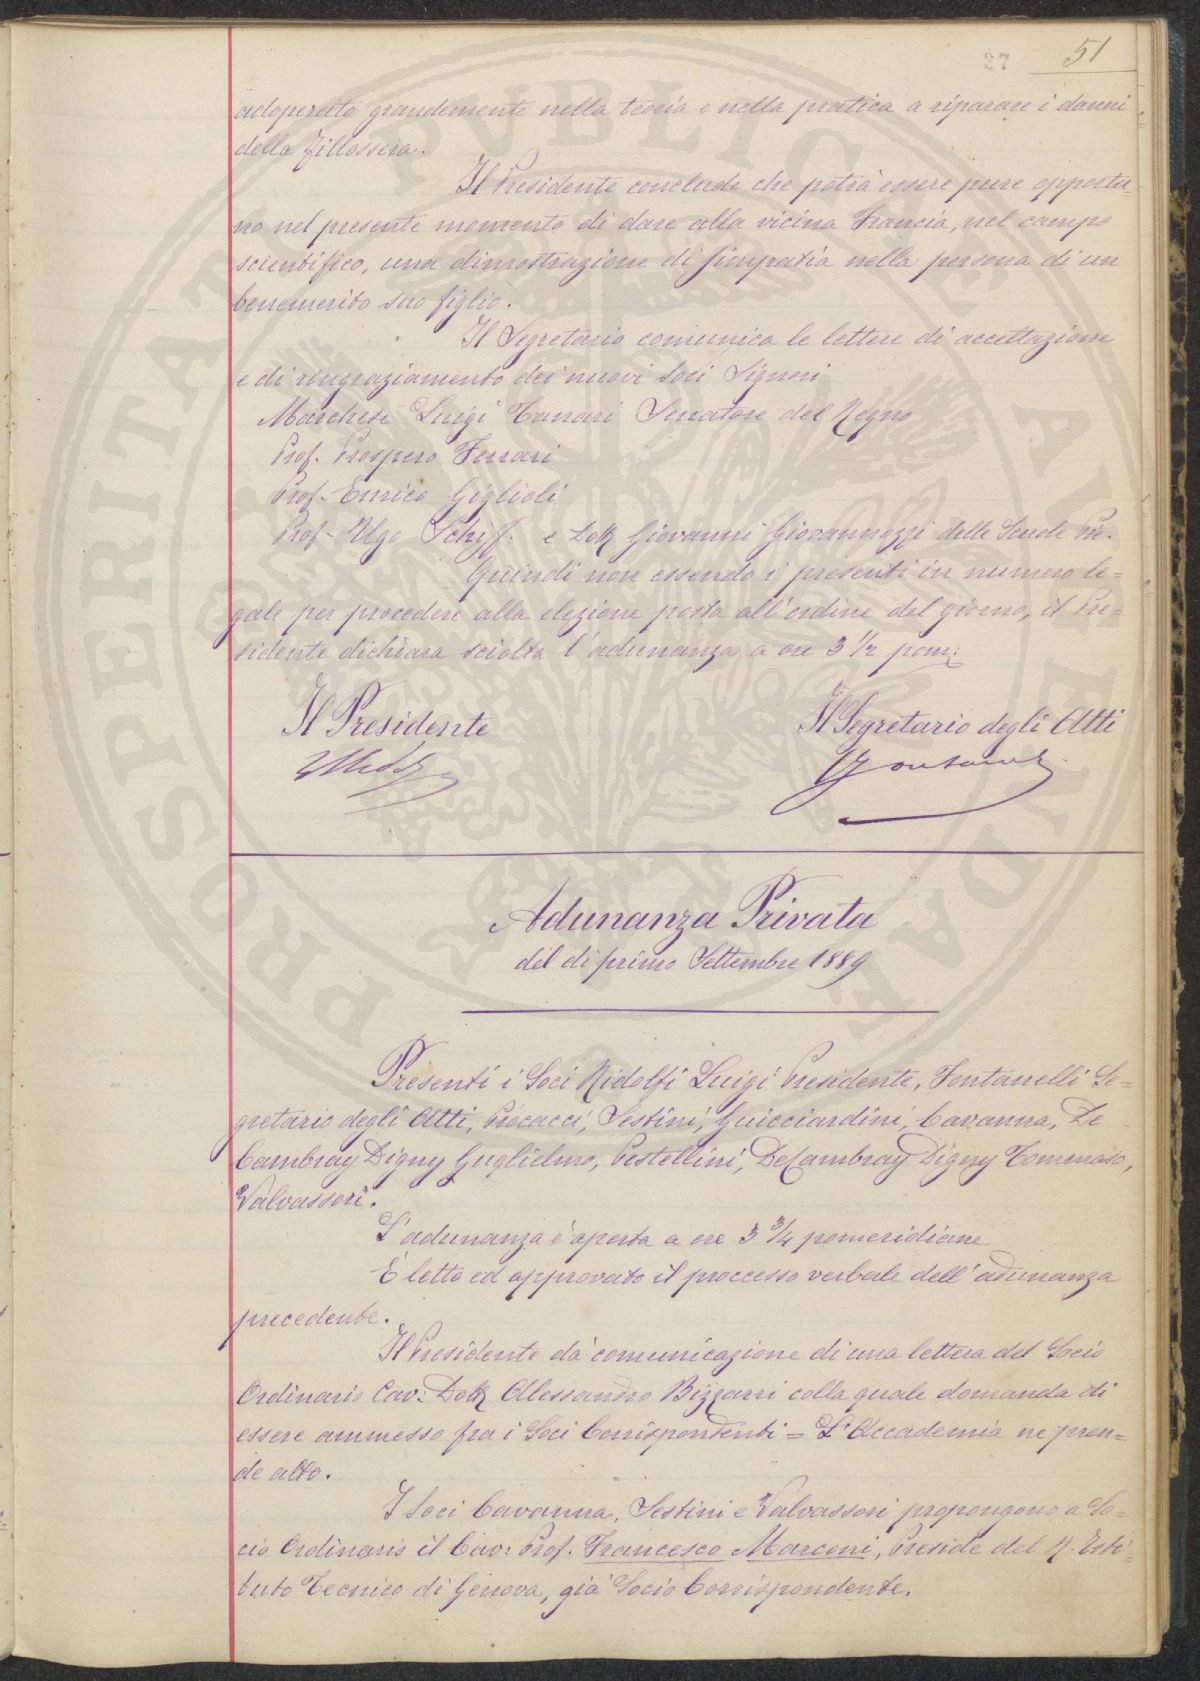 27 51
adoperato grandemente nella teoria e nella pratica a riparare i danni
della fillossera.
Il Presidente conclude che potrà essere pure opportu=
no nel presente momento di dare alla vicina Francia, nel campo
scientifico, una dimostrazione di simpatia nella persona di un
benemerito suo figlio.
Il Segretario comunica le lettere di accettazione
e di ringraziamento dei nuovi Soci Signori
Marchese Luigi Tanari Senatore del Regno
Prof. Prospero Ferrari
Prof. Enrico Giglioli
Prof. Ugo Schiff. e Dott Giovanni Giovannozzi delle Scuole Pie.
Quindi non essendo i presenti in numero le=
gale per procedere alla elezione posta all'ordine del giorno, il Pre=
sidente dichiara sciolta l'adunanza a ore 3 1/2 pom:
Il Presidente Il Segretario degli Atti
Adunanza Privata
del dì primo Settembre 1889
Presenti i Soci Ridolfi Luigi Presidente, Fontanelli Se=
gretario degli Atti, Procacci, Sestini, Guicciardini, Cavanna, De
Cambray Digny Guglielmo, Pestellini, De Cambray Digny Tommaso,
Valvassori.
L'adunanza è aperta a ore 3 3/4 pomeridiane
È letto ed approvato il processo verbale dell'adunanza
precedente.
Il Presidente dà comunicazione di una lettera del Socio
Ordinario Cav: Dott Alessandro Bizzarri colla quale domanda di
essere ammesso fra i Soci Corrispondenti = L'Accademia ne pren=
de atto.
I Soci Cavanna, Sestini e Valvassori propongono a So=
cio Ordinario il Cav: Prof. Francesco Marconi, Preside del R. Isti=
tuto Tecnico di Genova, già Socio Corrispondente.
PROSPERITATI PVBLICAE AVGENDAE